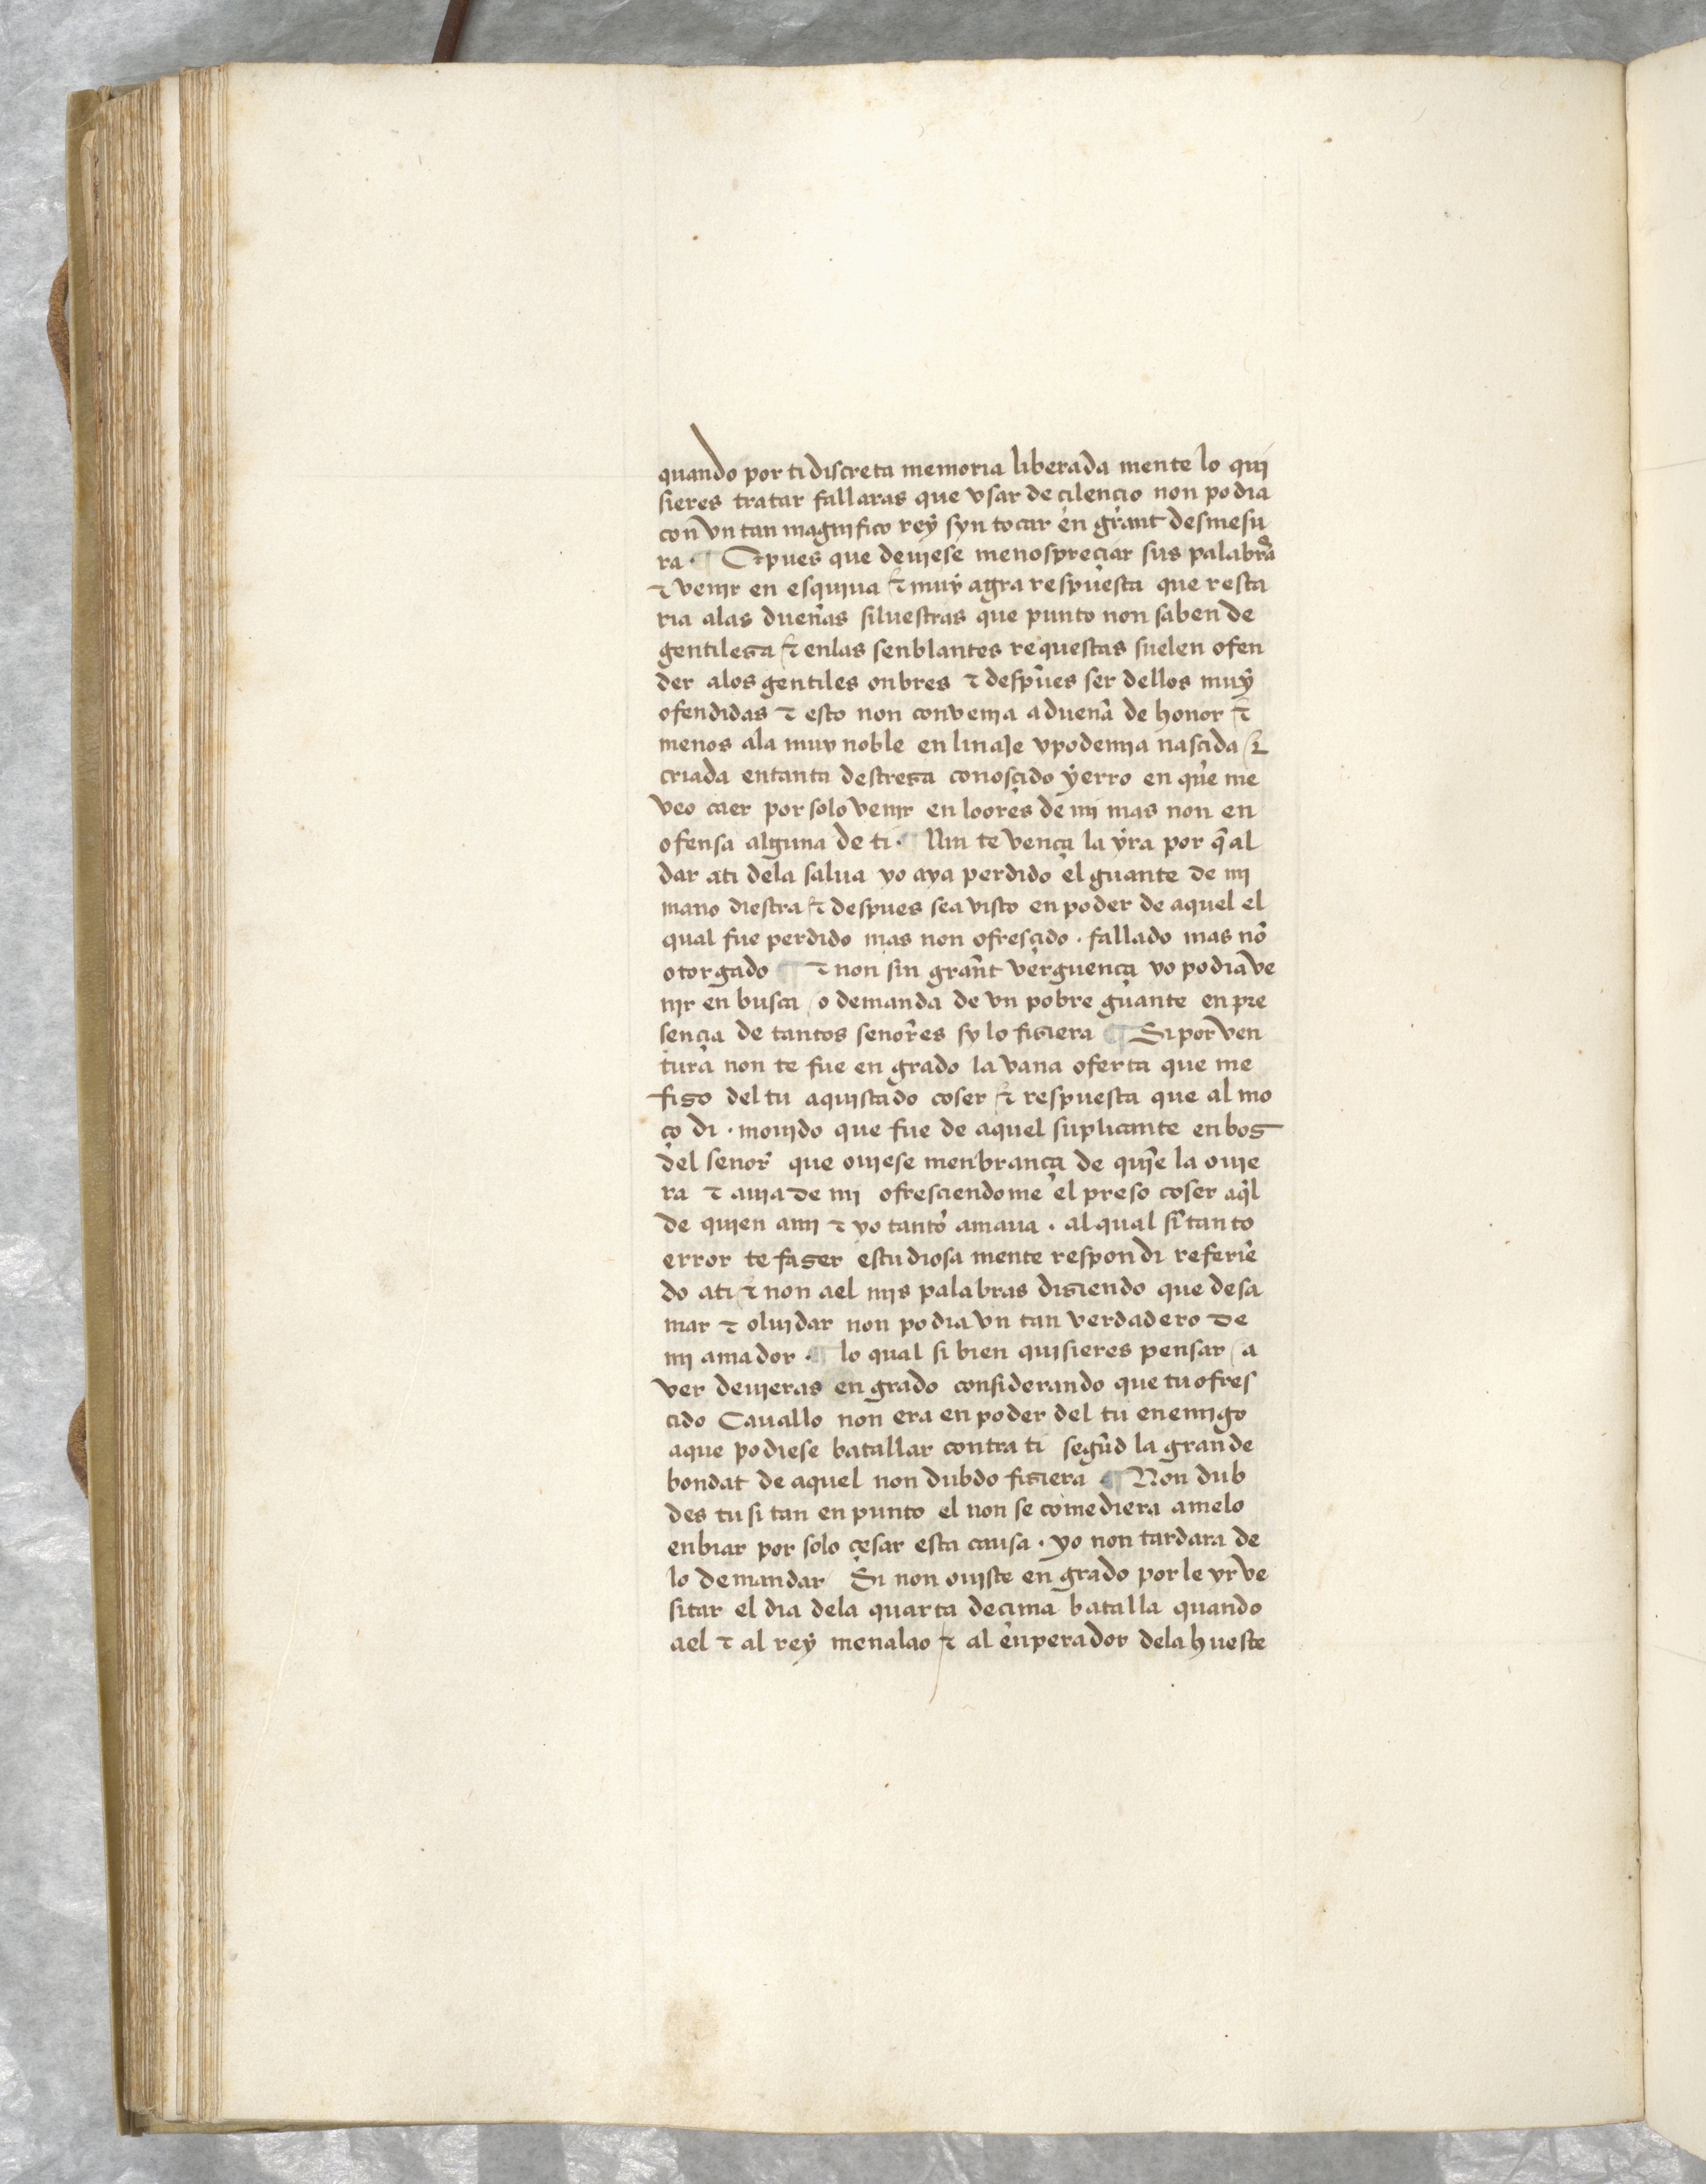 quando por ti discreta memoria liberada mente lo qui
sieres tratar fallaras que vsar de çilençio non podia
con vn tan magnifico reẏ syn tocar en grant desmesu
ra · ¶ E pues que deuiese menospreçiar sus palabra
⁊ venir en esquiua ⁊ muẏ agra respuesta que resta
ria alas dueñas siluestras que punto non saben de
gentilesa ⁊ enlas senblantes requestas suelen ofen
der alos gentiles onbres ⁊ despues ser dellos muẏ
ofendidas ⁊ esto non convenia a dueña de honor ⁊
menos ala muy noble en linaje ypodemia nascida ⁊
criada entanta destresa conosçido ẏerro en que me
veo caer por solo venir en loores de mi mas non en
ofensa alguna de ti · ¶ Nin te vença la ẏra por q̃ al
dar ati dela salua yo aya perdido el guante de mi
mano diestra ⁊ despues sea visto en poder de aquel el
qual fue perdido mas non ofresçido · fallado mas nõ
otorgado ¶ ⁊ non sin grant verguença yo podia ve
nir en busca / o demanda de vn pobre guante en pre
sençia de tantos señores sy lo fisiera ¶ Si por ven
tura non te fue en grado la vana oferta que me
fiso del tu aquistado coser ⁊ respuesta que al mo
ço di · mouido que fue de aquel suplicante en bos
del señor que ouiese menbrança de quiẽ la ouie
ra ⁊ auia de mi ofresciendome el preso coser aq̃l
de quien ami ⁊ yo tanto amaua · al qual sĩ tanto
error te faser estudiosa mente respondi referiẽ
do ati ⁊ non ael mis palabras disiendo que desa
mar ⁊ oluidar non podia vn tan verdadero de
mi amador · ¶ lo qual si bien quisieres pensar / a
ver deuieras en grado considerando que tu ofres
cido Cauallo non era en poder del tu enemigo
aque podiese batallar contra ti segũd la grande
bondat de aquel non dubdo fisiera ¶ Non dub
des tu si tan en punto el non se comediera amelo
enbiar por solo çesar esta causa · yo non tardara de
lo demandar Si non ouiste en grado por le yr ve
sitar el dia dela quarta deçima batalla quando
ael ⁊ al reẏ menalao ⁊ al enperador dela hueste